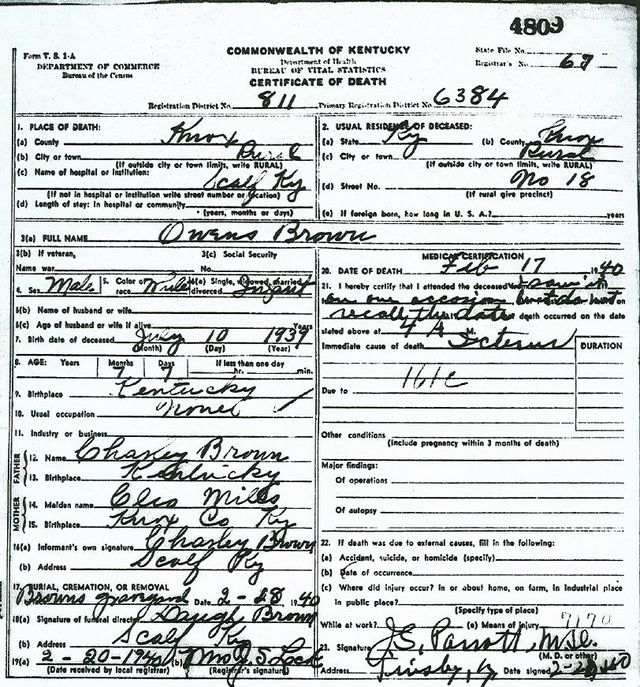 4809
Form V. S. 1-A
DEPARTMENT OF COMMERCE
Bureau of the Census
COMMONWEALTH OF KENTUCKY
Department of Health
BUREAU OF VITAL STATISTICS
CERTIFICATE OF DEATH
State File No.
Registrar's No. 67
Registration District No. 811 Primary Registration District No. 6384
1. PLACE OF DEATH:
(a) County Knox
(b) City or town Rural
(If outside city or town limits, write RURAL)
(c) Name of hospital or institution:
Scalf Ky
(If not in hospital or institution write street number or location)
(d) Length of stay: In hospital or community
(years, months or days)
2. USUAL RESIDENCE OF DECEASED:
(a) State Ky (b) County Knox
(c) City or town Rural
(If outside city or town limits, write RURAL)
(d) Street No. No 18
(If rural give precinct)
(e) If foreign born, how long in U. S. A.? years
3(a) FULL NAME Owens Brown
3(b) If veteran, Name war
3(c) Social Security No.
4. Sex Male 5. Color or race White 6(a) Single, widowed, married, divorced Infant
6(b) Name of husband or wife
6(c) Age of husband or wife if alive Years
7. Birth date of deceased July 10 1939
(Month) (Day) (Year)
8. AGE: Years Months Days If less than one day
7 7 hr. min.
9. Birthplace Kentucky
10. Usual occupation None
11. Industry or business
FATHER
12. Name Charley Brown
13. Birthplace Kentucky
MOTHER
14. Maiden name Cleo Mills
15. Birthplace Knox Co Ky
16(a) Informant's own signature Charley Brown
(b) Address Scalf Ky
17. BURIAL, CREMATION, OR REMOVAL
Browns graveyard Date 2-28 1940
18(a) Signature of funeral director Brown
(b) Address Scalf Ky
19(a) 2-20-1940 (b) Mrs J S Lock
(Date received by local registrar) (Registrar's signature)
MEDICAL CERTIFICATION
20. DATE OF DEATH Feb 17 1940
21. I hereby certify that I attended the deceased I saw it
on one occasion but do not
recall the date death occurred on the date
stated above at 4 A M.
Immediate cause of death Icterus
DURATION
161c
Due to
Other conditions
(Include pregnancy within 3 months of death)
Major findings:
Of operations
Of autopsy
22. If death was due to external causes, fill in the following:
(a) Accident, suicide, or homicide (specify)
(b) Date of occurrence
(c) Where did injury occur? in or about home, on farm, in industrial place
in public place?
(Specify type of place)
While at work? (e) Means of injury 7170
23. Signature J.S. Parrott, M.D.
(M. D. or other)
Address Ky Date signed